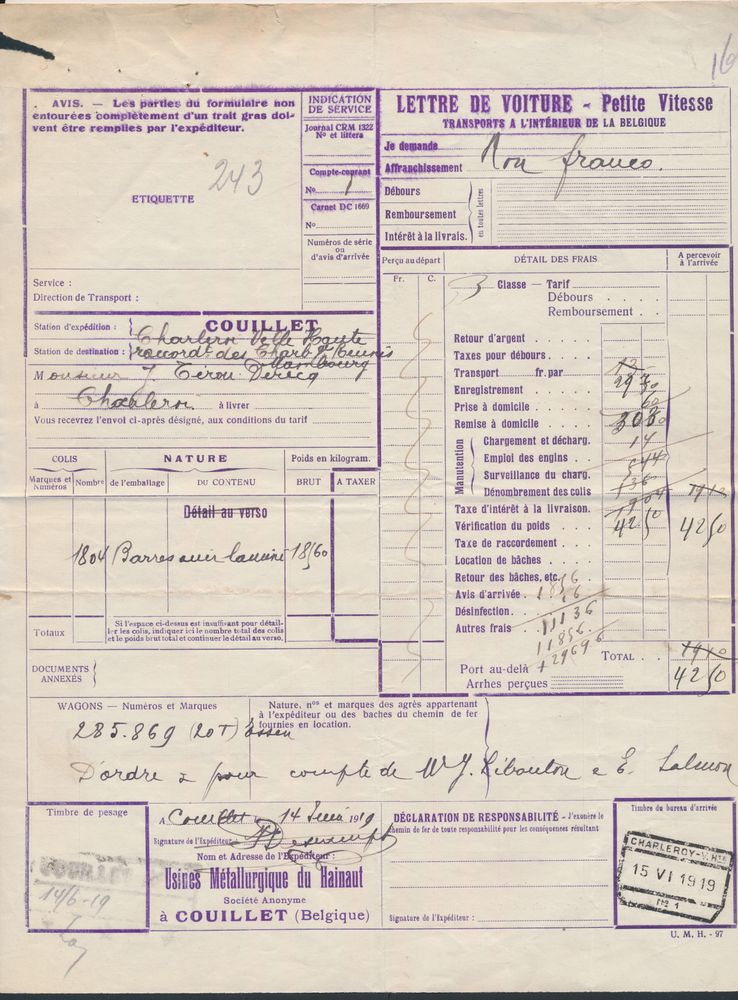 16
AVIS. — Les parties du formulaire non
entourées complètement d'un trait gras doi-
vent être remplies par l'expéditeur.
243
ETIQUETTE
Service :
Direction de Transport :
INDICATION
DE SERVICE
Journal CRM 1322
Nº et littera
Compte-courant
Nº 1
Carnet DC 1669
Nº
Numéros de série
ou
d'avis d'arrivée
LETTRE DE VOITURE - Petite Vitesse
TRANSPORTS A L'INTÉRIEUR DE LA BELGIQUE
Je demande
Affranchissement Non franco.
Débours
Remboursement
Intérêt à la livrais.
en toutes lettres
Station d'expédition : COUILLET
Charleroi Ville Haute
Station de destination : raccord. des Charb. Réunis
Mambourg
Monsieur J.
à Charleroi à livrer
Vous recevrez l'envoi ci-après désigné, aux conditions du tarif
COLIS NATURE Poids en kilogram.
Marques et Numéros Nombre de l'emballage DU CONTENU BRUT A TAXER
Détail au verso
1804 Barres acier laminé 18560
Totaux
Si l'espace ci-dessus est insuffisant pour détail-
ler les colis, indiquer ici le nombre total des colis
et le poids brut total et continuer le détail au verso.
DOCUMENTS
ANNEXÉS
Perçu au départ DÉTAIL DES FRAIS A percevoir à l'arrivée
Fr. C.
3 Classe — Tarif
Débours
Remboursement
Retour d'argent
Taxes pour débours
Transport fr. par 12
Enregistrement
Prise à domicile 60
Remise à domicile 3030
Manutention
Chargement et décharg. 14
Emploi des engins 544
Surveillance du charg. 136
Dénombrement des colis 1904 1910
Taxe d'intérêt à la livraison. 1910
Vérification du poids 4250 4250
Taxe de raccordement
Location de bâches
Retour des bâches, etc.
Avis d'arrivée 1856
Désinfection. 16
Autres frais 11136
11856.
+29696
TOTAL 1910
Port au-delà 4250
Arrhes perçues
WAGONS — Numéros et Marques
Nature, nºs et marques des agrès appartenant
à l'expéditeur ou des baches du chemin de fer
fournies en location.
285.869 (20T) Essen
D'ordre & pour compte de W J. Libouton & E. Salmon
Timbre de pesage
COUILLET
14/6-19
A Couillet le 14 Juin 1919
Signature de l'Expéditeur
Nom et Adresse de l'Expéditeur :
Usines Métallurgique du Hainaut
Société Anonyme
à COUILLET (Belgique)
DÉCLARATION DE RESPONSABILITÉ - J'exonère le
chemin de fer de toute responsabilité pour les conséquences résultant
Signature de l'Expéditeur :
Timbre du bureau d'arrivée
CHARLEROY-V.Hte
15 VI 1919
Nº 1
U. M. H. - 97